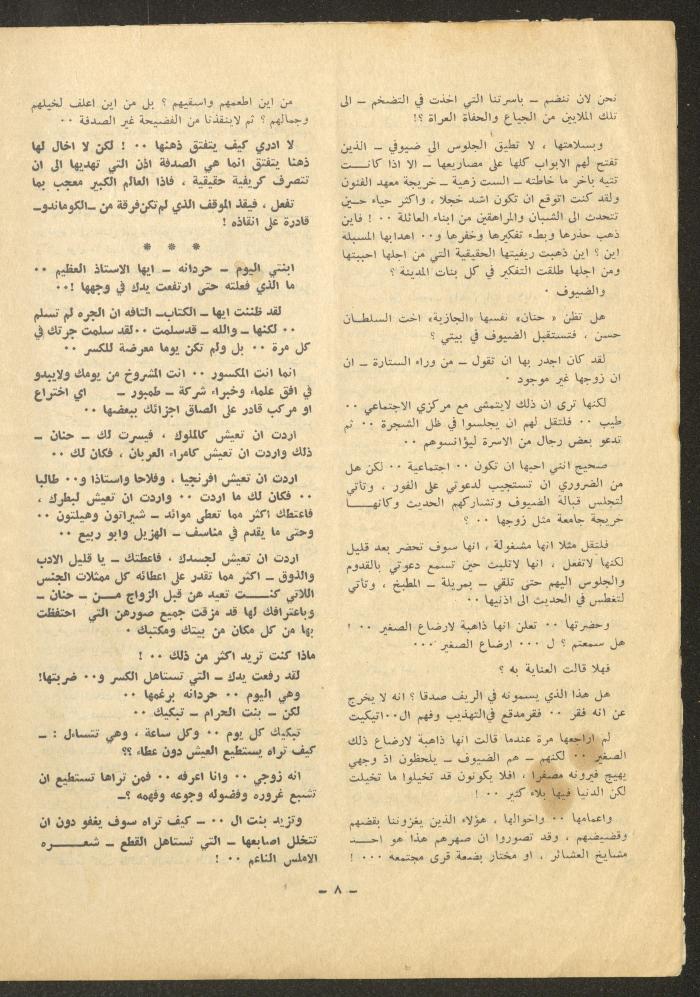 نحن لان ننضم ــ باسرتنا التي اخذت في التضخم ــ الى
تلك الملايين من الجياع والحفاة العراة ؟!
وبسلامتها ، لا تطيق الجلوس الى ضيوفي ــ الذين
تفتح لهم الابواب كلها على مصاريعها ــ الا اذا كانـــت
تتيه باخر ما خاطته ــ الست زهية ــ خريجة معهد الفنون
ولقد كنت اتوقع ان تكون اشد خجلا ، واكثر حياء حــين
تتحدث الى الشبان والمراهقين من ابناء العائلة ٠٠ ! فاين
ذهب حذرها وبطء تفكيرها وخفرها و٠٠ اهدابها المسبلة
اين ؟ اين ذهبت ريفيتها الحقيقية التي من اجلها احببتها
ومن اجلها طلقت التفكير في كل بنات المدينة ؟
والضيوف ٠
هل تظن « حنان» نفسها «الجازية» اخت السلطــان
حسن ، فتستقبل الضيوف في بيتي ؟
لقد كان اجدر بها ان تقول ــ من وراء الستارة ــ ان
ان زوجها غير موجود ٠
لكنها ترى ان ذلك لايتمشى مع مركزي الاجتماعي ٠٠
طيب ٠٠ فلتقل لهم ان يجلسوا في ظل الشجرة ٠٠ ثم
تدعو بعض رجال من الاسرة ليؤانسوهم ٠٠
صحيح انني احبها ان تكون ٠٠ اجتماعية ٠٠ لكن هل
من الضروري ان تستجيب لدعوتي على الفور ، وتأتي
لتجلس قبالة الضيوف وتشاركهم الحديث وكأنهـــا
خريجة جامعة مثل زوجها ٠٠ ؟
فلتقل مثلا انها مشغولة ، انها سوف تحضر بعد قليل
لكنها لاتفعل ، انها لاتلبث حين تسمع دعوتي بالقدوم
والجلوس اليهم حتى تلقي ــ بمريلة ــ المطبخ ، وتأتي
لتغطس في الحديث الى اذنيها ٠٠
وحضرتها ٠٠ تعلن انها ذاهبة لارضاع الصغير ٠٠ !
هل سمعتم ؟ ل ٠٠٠ ارضاع الصغير ٠٠٠
فهلا قالت العناية به ؟
هل هذا الذي يسمونه في الريف صدقا ؟ انه لا يخرج
عن انه فقر ٠٠ فقرمدقع فيالتهذيب وفهم ال٠٠٠اتيكيت
لم اراجعها مرة عندما قالت انها ذاهبة لارضاع ذلك
الصغير ٠٠ لكنهم ــ هم الضيوف ــ يلحظون اذ وجهي
يهيج فيرونه مصفرا ، افلا يكونون قد تخيلوا ما تخيلت
لكن الدنيا فيها بلاء كثير ٠٠ !
واعمامها ٠٠ واخوالها ، هؤلاء الذين يغزوننا بقضهم
وقضيضهم ، وقد تصوروا ان صهرهم هذا هو احـــد
مشايخ العشائر ، او مختار بضعة قرى مجتمعه ٠٠٠ !
من اين اطعمهم واسقيهم ؟ بل من اين اعلف لخيلهم
وجمالهم ؟ ثم لاينقذنا من الفضيحة غير الصدفة ٠٠
لا ادري كيف يتفتق ذهنها ٠٠ ! لكن لا اخال لها
ذهنا يتفتق انما هي الصدفة اذن التي تهديها الى ان
تتصرف كريفية حقيقية ، فاذا العالم الكبير معجب بما
تفعل ، فينقذ الموقف الذي لم تكن فرقة من ــالكوماندوــ
قادرة على انقاذه !
* * *
ابنتي اليوم ــ حردانه ــ ايها الاستاذ العظيم ٠٠
ما الذي فعلته حتى ارتفعت يدك في وجهها !٠٠
لقد ظننت ايها ــ الكتابــ التافه ان الجره لم تسلم
٠٠ لكنها ــ والله ــ قدسلمت ٠٠ لقد سلمت جرتك في
كل مرة ٠٠ بل ولم تكن يوما معرضة للكسر ٠٠
انما انت المكسور ٠٠ انت المشروخ من يومك ولايبدو
في افق علماء وخبراء شركة ــ طمبور ــ اي اختراع
او مركب قادر على الصاق اجزائك ببعضها ٠٠
اردت ان تعيش كالملوك ، فيسرت لك ــ حنان ــ
ذلك واردت ان تعيش كامراء العربان ، فكان لك ٠٠
اردت ان تعيش افرنجيا ، وفلاحا واستاذا و٠٠ طالبا
٠٠ فكان لك ما اردت ٠٠ واردت ان تعيش لبطرك ،
فاعتطك اكثر مما تعطى موائد ــ شيراتون وهيلتون ٠٠
وحتى ما يقدم في مناسف ــ الهزيل وابو ربيع ٠٠
اردت ان تعيش لجسدك ، فاعطتك ــ يا قليل الادب
والذوق ــ اكثر مما تقدر على اعطائه كل ممثلات الجنس
اللاتي كنـــت تعيد هن قبل الزواج مــن ــ حنان ــ
وباعترافك لها قد مزقت جميع صورهن التي احتفظت
بها من كل مكان من بيتك ومكتبك ٠
ماذا كنت تريد اكثر من ذلك ٠٠ !
لقد رفعت يدك ــ التي تستاهل الكسر و٠٠ ضربتها!
وهي اليوم ٠٠ حردانه برغمها ٠٠
لكن ــ بنت الحرام ــ تبكيك ٠٠
تبكيك كل يوم ٠٠ وكل ساعة ، وهي تتساءل : ــ
كيف تراه يستطيع العيش دون عطاء ؟؟
انه زوجي ٠٠ وانا اعرفه ٠٠ فمن تراها تستطيع ان
تشبع غروره وفضوله وجوعه وفهمه ؟ــ
وتزيد بنت ال ٠٠ ــ كيف تراه سوف يغفو دون ان
تتخلل اصابعها ــ التي تستاهل القطع ــ شعـــره
الاملس الناعم ٠٠ !
ــ ٨ ــ